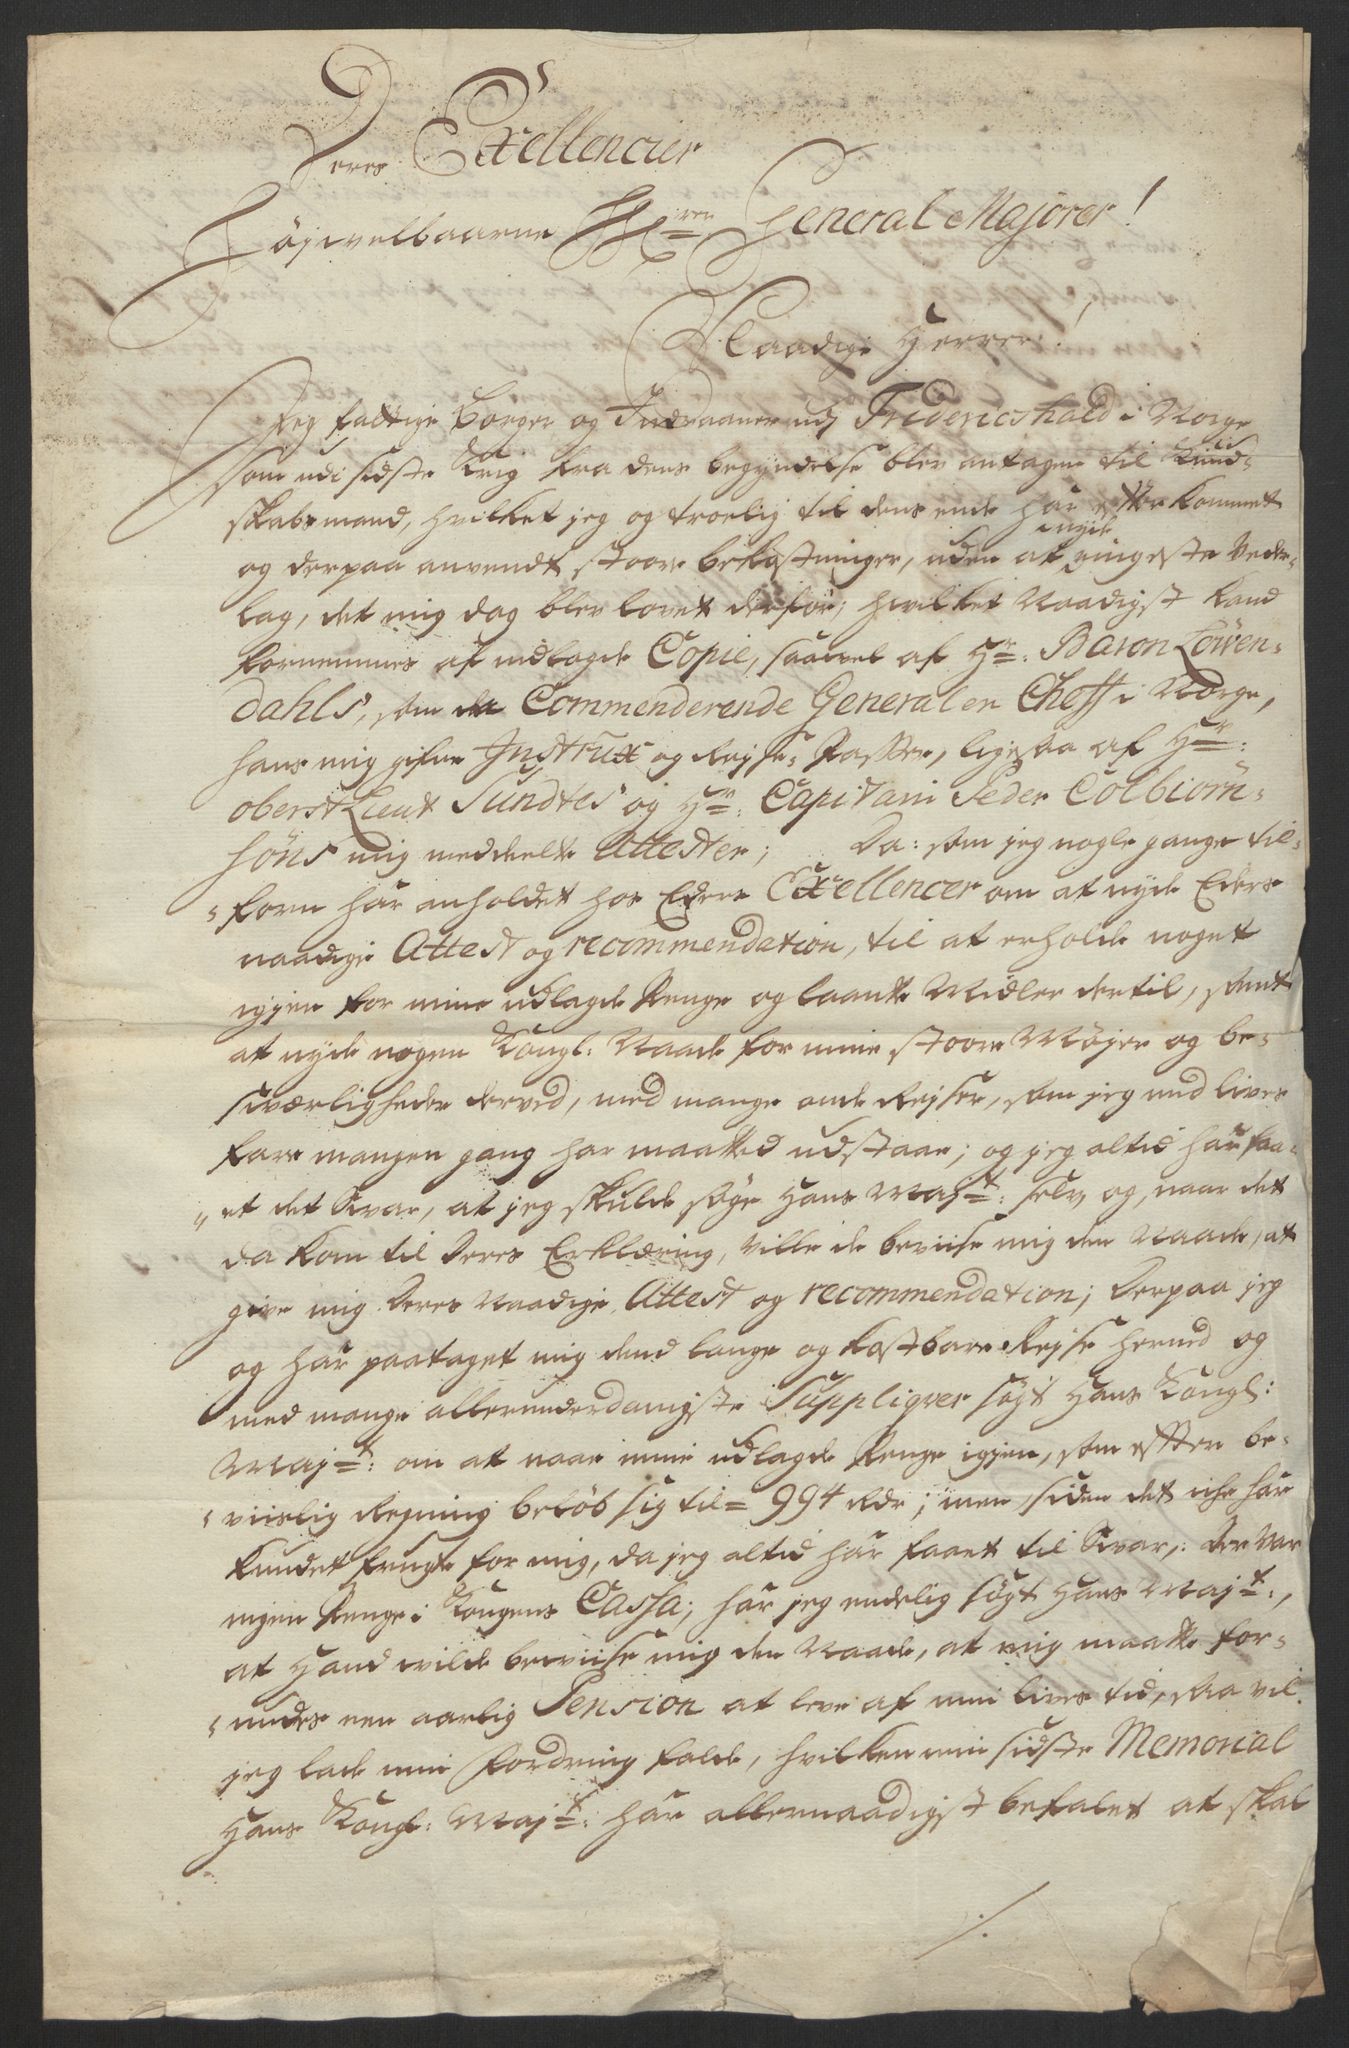 Deres Excellencier
Højvelbaarne HHrrer General Majorer!
Naadige Herrer!
Jeg fattige Borger og Indvaaner udj Fridericshald i Norge
som udi sidste Krig fra dens begyndelse blev antagen til Kund-
skabsmand, hvilket jeg og troelig til dens ende har efterkommet
og derpaa anvendt stoore bekostninger, uden at nyde ringeste Veder-
lag, det mig dog blev lovet derfor, hvilket Naadigst kand
fornemmes af indlagde Copie, saavel af Hr: Baron Löwen-
dahls, som da Commenderende General en Cheff i Norge,
hans mig gifne Instrux og Rejse-Passer, ligesaa af Hr:
oberst Lieut Sundtes og Hr: Capitain Peder Colbiörn-
söns mig meddeelte Attester; Da: som jeg nogle gange til-
forn har anholdet hos Edere Excellencer om at nyde Eders
naadige Attest og recommendation, til at erholde noget
igjen for mine udlagde Penge og laante Midler dertil, samt
at nyde nogen Kongl: Naade for mine stoore Møjer og be-
sværligheder derved, med mange onde Rejser, som jeg med livs
fare mangen gang har maatted udstaae; og jeg altid har faa-
et det Svar, at jeg skulde søge Hans Majt: selv og, naar det
da kom til Deres Erklæring, ville de beviise mig den Naade, at
give mig Deres Naadige Attest og recommendation; Derpaa jeg
og har paataget mig dend lange og kostbare Rejse herned og
med mange allerunderdanigste Suppliqver søgt Hans Kongl:
Majt: om at naae mine udlagde Penge igjen, som efter be-
viislig Regning beløb sig til = 994 Rdr; men siden det iche har
kundet frugte for mig, da jeg altid har faaet til Svar,: der var
ingen Penge i Kongens Cassa; har jeg endelig søgt Hans Majt:,
at Hand vilde beviise mig den Naade, at mig maatte for-
undes een aarlig Pension at leve af min livs tid, saa vil
jeg lade min fordring falde, hvilken min sidste Memorial
Hans Kongl: Majt: har allernaadigst befalet at skal